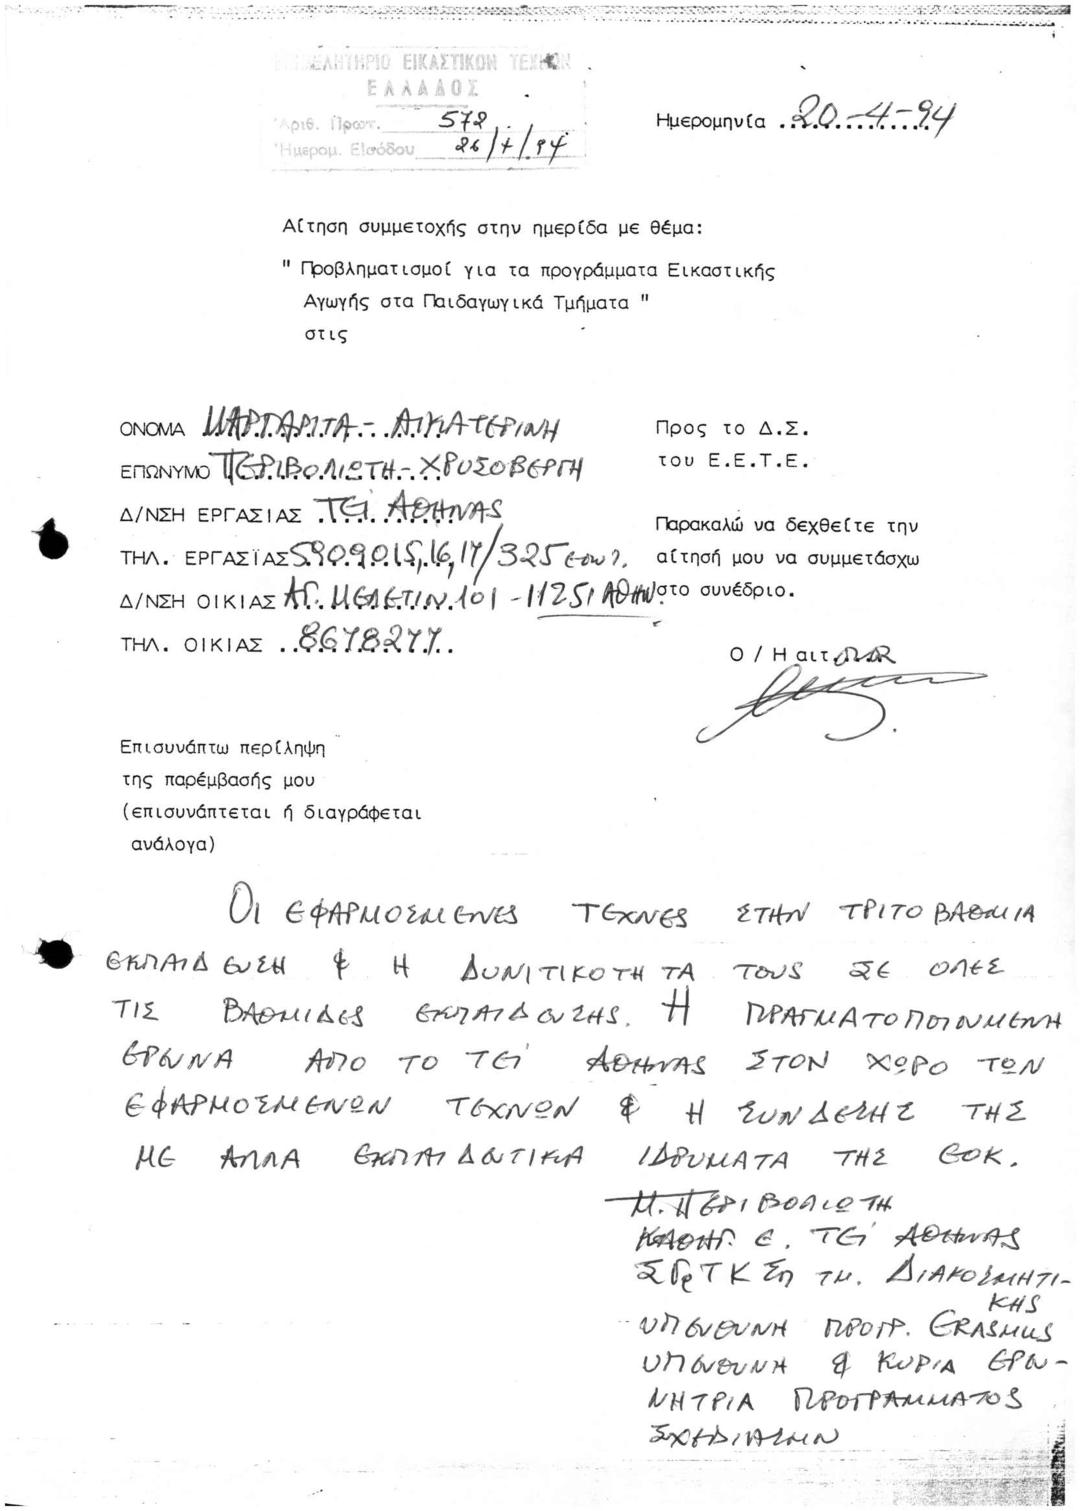 ΕΠΙΜΕΛΗΤΗΡΙΟ ΕΙΚΑΣΤΙΚΩΝ ΤΕΧΝΩΝ
ΕΛΛΑΔΟΣ
Ἀριθ. Πρωτ. 572
Ἡμερομ. Εἰσόδου 26/4/94
Ημερομηνία 20-4-94
Αίτηση συμμετοχής στην ημερίδα με θέμα:
" Προβληματισμοί για τα προγράμματα Εικαστικής
Αγωγής στα Παιδαγωγικά Τμήματα "
στις
ΟΝΟΜΑ ΜΑΡΓΑΡΙΤΑ - ΑΙΚΑΤΕΡΙΝΗ
ΕΠΩΝΥΜΟ ΠΕΡΙΒΟΛΙΩΤΗ - ΧΡΥΣΟΒΕΡΓΗ
Δ/ΝΣΗ ΕΡΓΑΣΙΑΣ ΤΕΙ ΑΘΗΝΑΣ
ΤΗΛ. ΕΡΓΑΣΪΑΣ 5909015,16,17/325 εσωτ.
Δ/ΝΣΗ ΟΙΚΙΑΣ ΑΓ. ΜΕΛΕΤΙΟΥ 101 - 11251 ΑΘΗΝ.
ΤΗΛ. ΟΙΚΙΑΣ 8678277
Προς το Δ.Σ.
του Ε.Ε.Τ.Ε.
Παρακαλώ να δεχθείτε την
αίτησή μου να συμμετάσχω
στο συνέδριο.
Ο / Η αιτ
Επισυνάπτω περίληψη
της παρέμβασής μου
(επισυνάπτεται ή διαγράφεται
ανάλογα)
ΟΙ ΕΦΑΡΜΟΣΜΕΝΕΣ ΤΕΧΝΕΣ ΣΤΗΝ ΤΡΙΤΟΒΑΘΜΙΑ
ΕΚΠΑΙΔΕΥΣΗ & Η ΔΥΝΙΤΙΚΟΤΗΤΑ ΤΟΥΣ ΣΕ ΟΛΕΣ
ΤΙΣ ΒΑΘΜΙΔΕΣ ΕΚΠΑΙΔΕΥΣΗΣ. Η ΠΡΑΓΜΑΤΟΠΟΙΟΥΜΕΝΗ
ΕΡΕΥΝΑ ΑΠΟ ΤΟ ΤΕΙ ΑΘΗΝΑΣ ΣΤΟΝ ΧΩΡΟ ΤΩΝ
ΕΦΑΡΜΟΣΜΕΝΩΝ ΤΕΧΝΩΝ & Η ΣΥΝΔΕΣΗΣ ΤΗΣ
ΜΕ ΑΛΛΑ ΕΚΠΑΙΔΕΥΤΙΚΑ ΙΔΡΥΜΑΤΑ ΤΗΣ ΕΟΚ.
Μ. ΠΕΡΙΒΟΛΙΩΤΗ
ΚΑΘΗΓ. Ε. ΤΕΙ ΑΘΗΝΑΣ
ΣΓρΤΚΣπ ΤΜ. ΔΙΑΚΟΣΜΗΤΙ-
ΚΗΣ
ΥΠΕΥΘΥΝΗ ΠΡΟΓΡ. ERASMUS
ΥΠΕΥΘΥΝΗ & ΚΥΡΙΑ ΕΡΕΥ-
ΝΗΤΡΙΑ ΠΡΟΓΡΑΜΜΑΤΟΣ